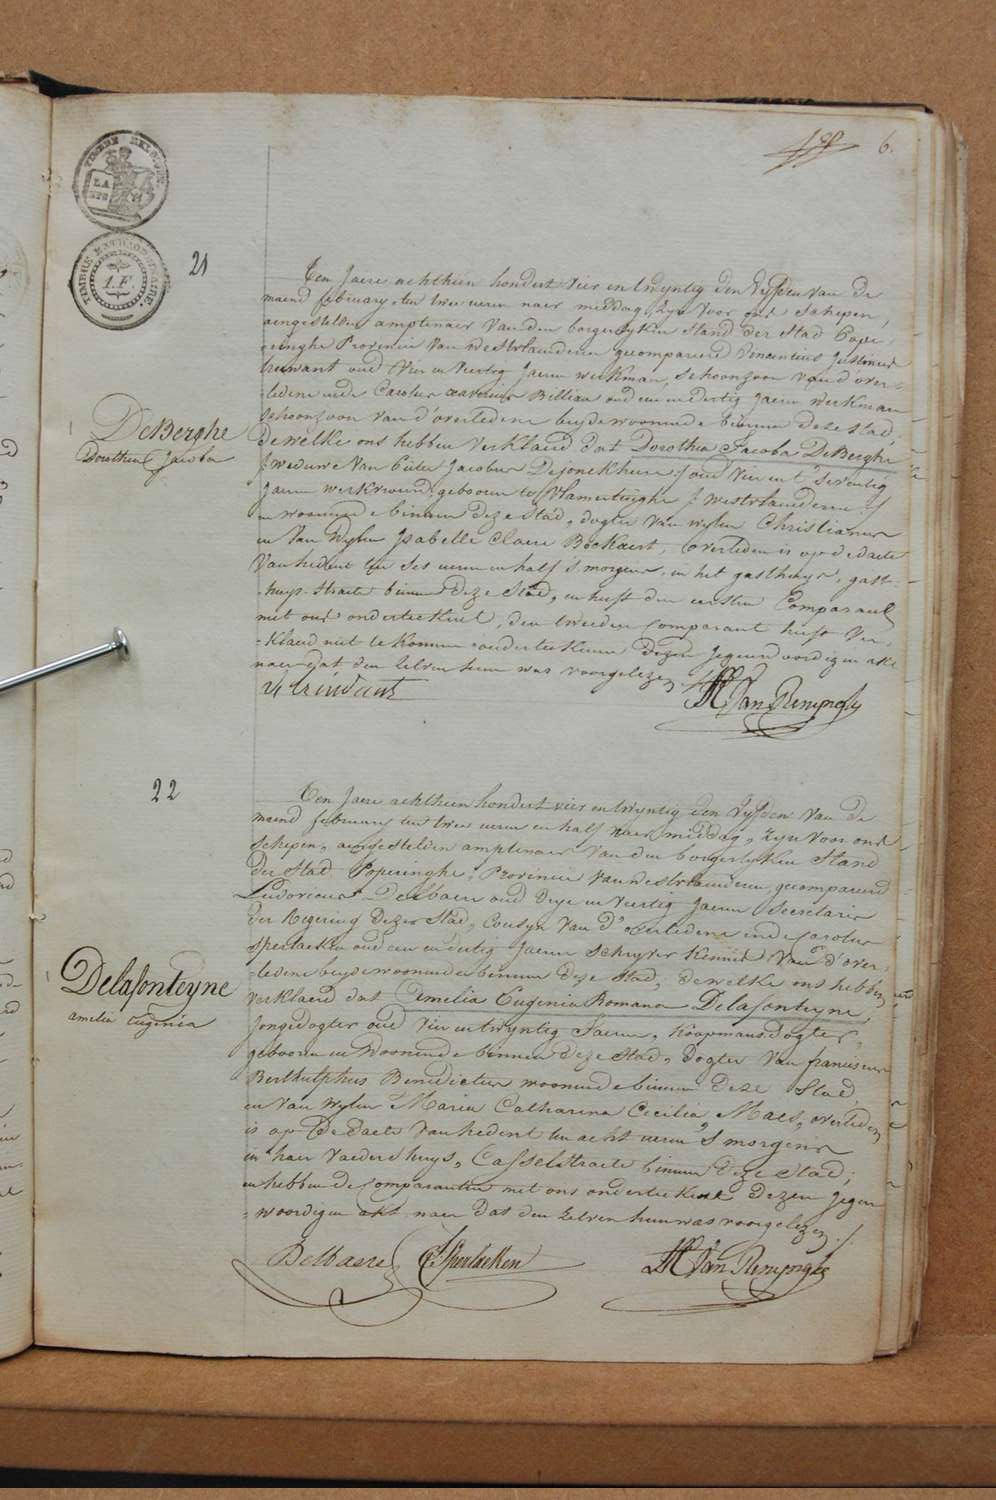 6.
TIMBRE
TIMBRE EXTRAORDINAIRE.
1.F.
21
Den Jaere achthien hondert vier en twyntig den vyfden van de
maend february ten twee uren naer middag, zyn voor ons schepen,
aengestelden amptenaer van den borgerlyken stand der stad Pope-
-ringhe Provincie van westvlaenderen gecompareerd Vincentius Justinus
oud vier en veertig Jaeren werkman, schoonzoon van d'over-
-ledene ende Carolus xaverius Billiau oud een en dertig Jaeren werkman
schoonzoon van d'overledene beyde woonende binnen deze stad,
DeBerghe
Dorothea Jacoba
dewelke ons hebben verklaerd dat Dorothea Jacoba DeBerghe
weduwe van Pieter Jacobus Dejonckheere, oud vier en t'seventig
Jaeren werkvrouw, geboren tot Vlamertinghe westvlaenderen
en woonende binnen deze stad, dogter van wylen Christianus
en van wylen Isabelle Claere Bôckaert, overleden is op de daete
van hedent ten ses uren en half s'morgens, in het gasthuys, gast-
-huys-straete binnen deze stad, en heeft den eersten Comparant
met ons onderteekent, den tweeden Comparant heeft ver-
-klaerd niet te konnen onderteekenen dezen jegenwoordigen akt
naer dat den zelven hun was voorgelezen
Van Renynghe
22
Den Jaere achthien hondert vier en twyntig den vyfden van de
maend february ten twee uren en half naer middag, zyn voor ons
schepen, aengestelden amptenaer van den borgerlyken stand
der stad Poperinghe, Provincie van westvlaenderen, gecompareerd
Ludovicus Delbaere oud drye en veertig Jaeren secretaris
der Regering dezer stad, Cousyn van d'overledene ende Carolus
Sperlaeken oud een en dertig Jaeren schryver kennis van d'over-
-ledene beyde woonende binnen deze stad, dewelke ons hebben
Delafonteyne
amelia Eugenia
verklaerd dat Amelia Eugenia Romana Delafonteyne,
Jongedogter oud vier en twyntig Jaeren, koopmans dogter,
geboren en woonende binnen deze stad, dogter van franciscus
Berthulphus Benedictus woonende binnen deze stad,
en van wylen Maria Catharina Cecilia Maes, overleden
is op de daete van hedent ten acht uren s'morgens
in haer vaders huys, Casselstraete binnen deze stad;
en hebben de Comparanten met ons onderteekent dezen jegen-
-woordigen akt naer dat den zelven hun was voorgelezen
Delbaere C. Sperlaeken Van Renynghe